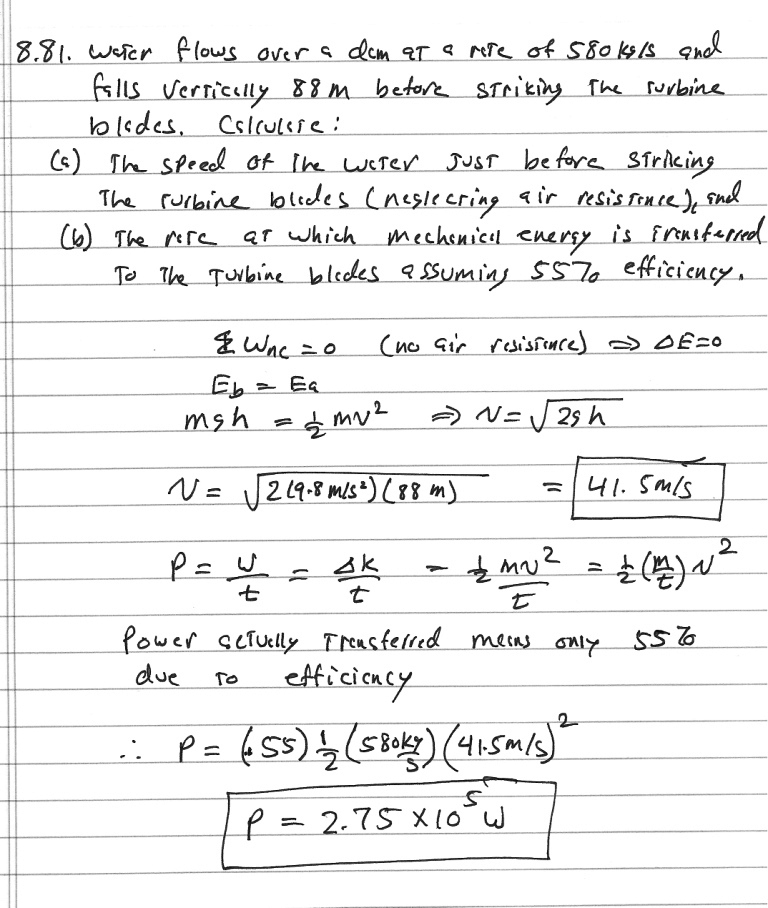 8.81. Water flows over a dam at a rate of 580 kg/s and
falls vertically 88 m before striking the turbine
blades. Calculate:
(a) The speed of the water just before striking
the turbine blades (neglecting air resistance), and
(b) The rate at which mechanical energy is transferred
to the turbine blades assuming 55% efficiency.
Σ W_NC = 0 (no air resistance) ⇒ ΔE=0
E_b = E_a
mgh = ½ mv² ⇒ v = √2gh
v = √2(9.8 m/s²)(88 m) = 41.5 m/s
P = W/t = ΔK/t = ½ mv²/t = ½ (m/t) v²
Power actually transferred means only 55%
due to efficiency
∴ P = (.55) ½ (580 kg/s) (41.5 m/s)²
P = 2.75 x10⁵ W